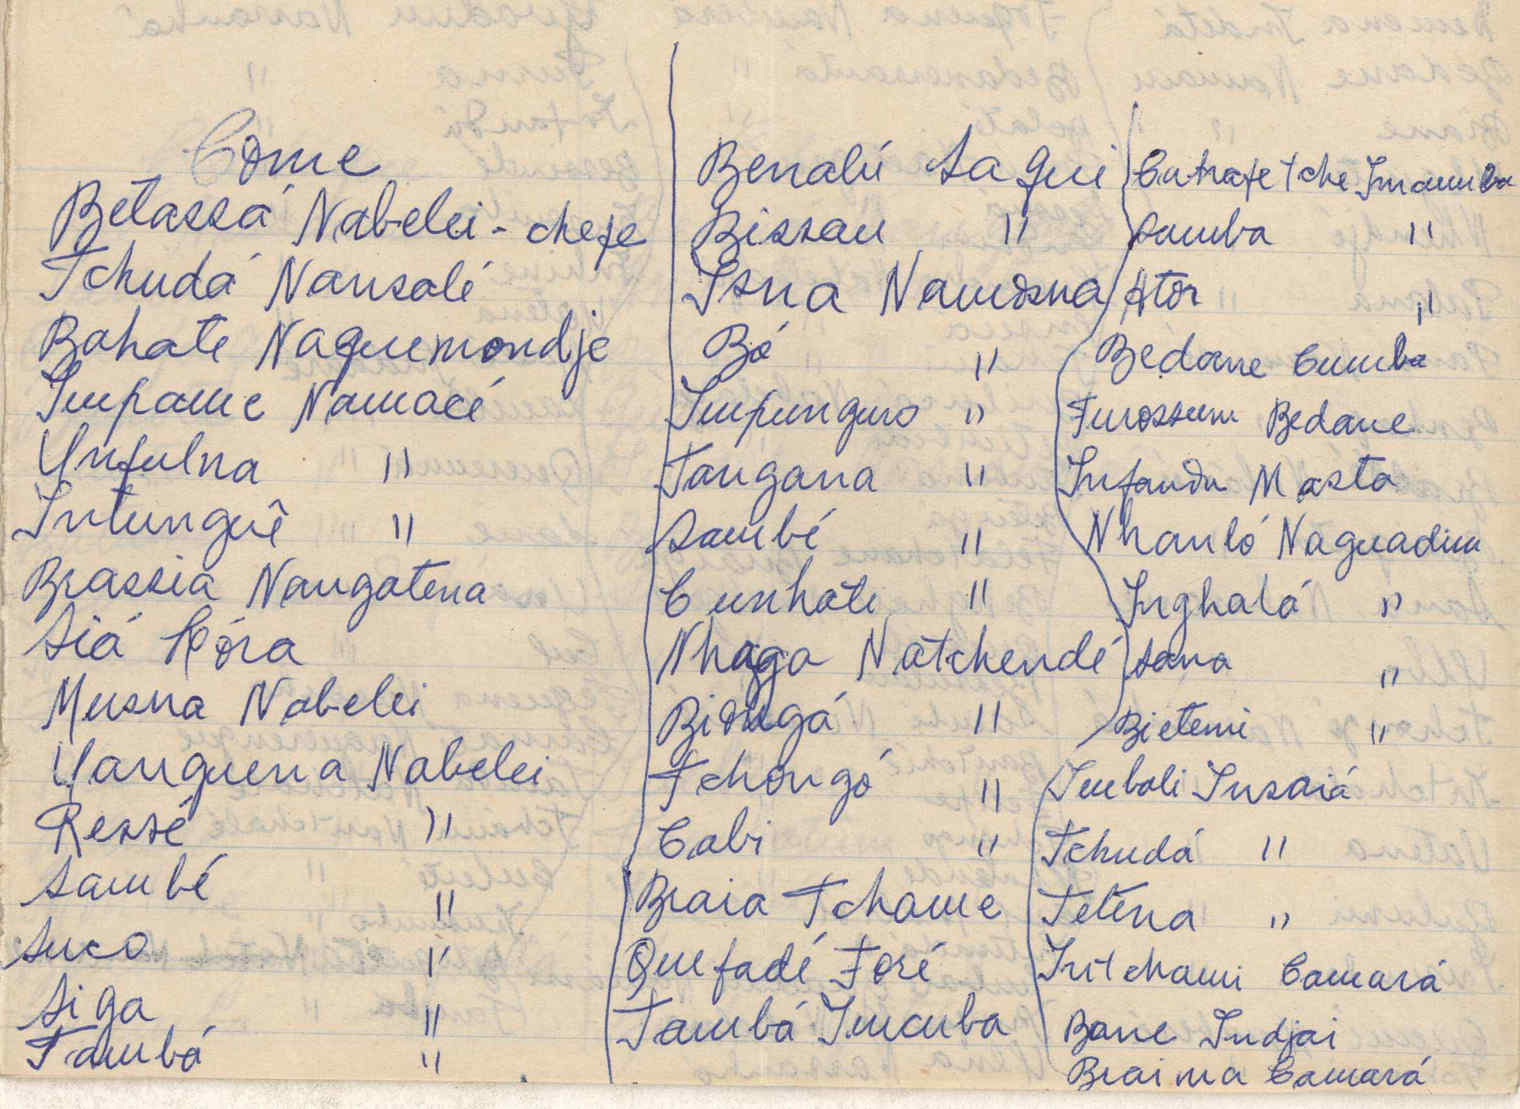 Come
Betassá Nabelei - chefe
Tchudá Nansalé
Bahate Naquemondje
Impame Namacé
Unfulna "
Intunguê "
Brassia Nangatena
Siá Córa
Musna Nabelei
Uanguena Nabelei
Ressé "
Sambé "
Suco "
Siga "
Tambá "
Benalú Sa Gui
Bissau "
Isna Namosna
Bó "
Impunguro "
Tangana "
Sambé "
Cunhate "
Nhaga Natchendé
Bidugá "
Tchongó "
Cabi "
Braia Tchame
Quefadé Foré
Tambá Imcuba
Catrafe Tche Inamba
Samba "
Ator "
Bedane Cumba
Furossum Bedane
Infandu Masta
Nhanló Naguadim
Inghalá "
Sana "
Bietemi "
Imbali Insaiá
Tchudá "
Tetena "
Intchami Camará
Bane Indjai
Braima Camará